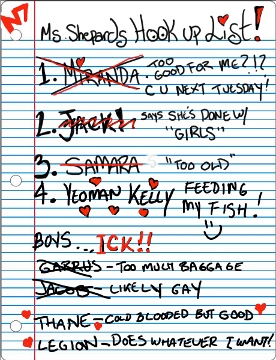 Ms. Shepard's Hook up List!
1. Miranda - Too
Good for me?!?
C U next Tuesday!
2. Jack! Says she's done w/
"Girls"
3. Samara "Too old"
4. Yeoman Kelly Feeding
my fish!
Boys... Ick!!
Garrus - Too much baggage
Jacob - Likely gay
Thane - Cold blooded but good
Legion - Does whatever I want!!